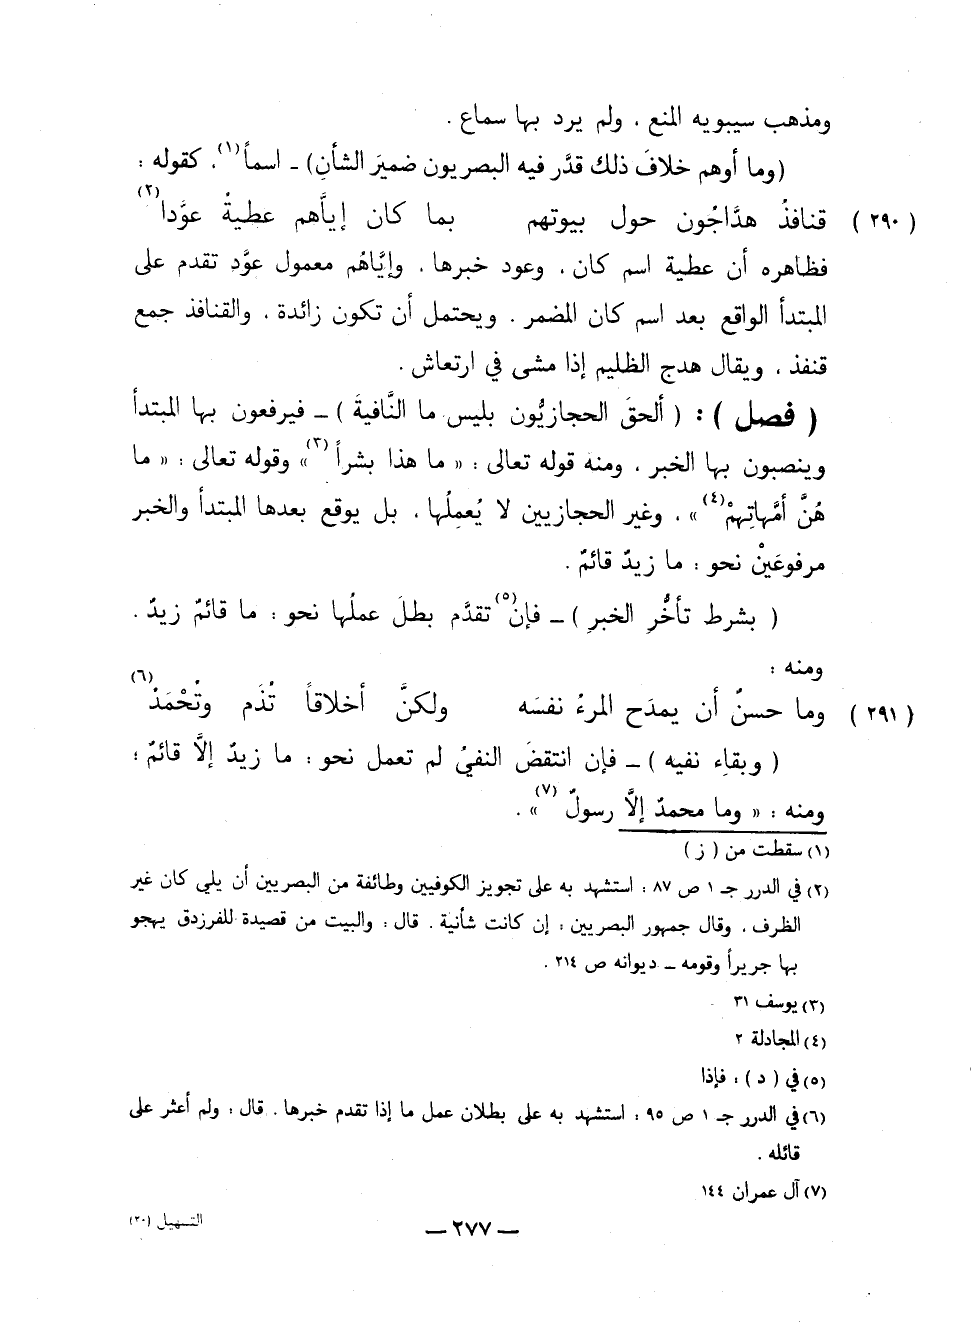 ومذهب سيبويه المنع ، ولم يرد بها سماع .
(وما أوهم خلافَ ذلك قدَّر فيه البصريون ضميرَ الشأنِ) ــ اسماً(١)، كقوله :
(٢٩٠) قنافذُ هدَّاجُون حول بيوتهم     بما كان إيَّاهم عطيةُ عوَّدا(٢)
فظاهره أن عطية اسم كان ، وعود خبرها ، وإيَّاهُم معمول عوَّد تقدم على
المبتدأ الواقع بعد اسم كان المضمر . ويحتمل أن تكون زائدة ، والقنافذ جمع
قنفذ ، ويقال هدج الظليم إذا مشى في ارتعاش .
( فصل ) : ( ألحقَ الحجازيُّون بليس ما النَّافيةَ ) ــ فيرفعون بها المبتدأ
وينصبون بها الخبر ، ومنه قوله تعالى : « ما هذا بشراً (٣)» وقوله تعالى : « ما
هُنَّ أمَّهاتِهِمْ(٤) » ، وغير الحجازيين لا يُعمِلُها ، بل يوقع بعدها المبتدأ والخبر
مرفوعَيْن نحو : ما زيدٌ قائمٌ .
( بشرط تأخُّرِ الخبرِ ) ــ فإن(٥) تقدَّم بطلَ عملُها نحو : ما قائمٌ زيدٌ .
ومنه :
(٢٩١) وما حسنٌ أن يمدَح المرءُ نفسَه     ولكنَّ أخلاقاً تُذَم وتُحْمَدُ(٦)
( وبقاءِ نفيه ) ــ فإن انتقضَ النفيُ لم تعمل نحو : ما زيدٌ إلَّا قائمٌ ؛
ومنه : « وما محمدٌ إلَّا رسولٌ (٧) » .
(١) سقطت من ( ز )
(٢) في الدرر جـ ١ ص ٨٧ : استشهد به على تجويز الكوفيين وطائفة من البصريين أن يلي كان غير
الظرف ، وقال جمهور البصريين : إن كانت شأنية . قال : والبيت من قصيدة للفرزدق يهجو
بها جريراً وقومه ــ ديوانه ص ٢١٤ .
(٣) يوسف ٣١
(٤) المجادلة ٢
(٥) في ( د ) : فإذا
(٦) في الدرر جـ ١ ص ٩٥ : استشهد به على بطلان عمل ما إذا تقدم خبرها . قال : ولم أعثر على
قائله .
(٧) آل عمران ١٤٤
ــ ٢٧٧ ــ
التسهيل (٢٠)